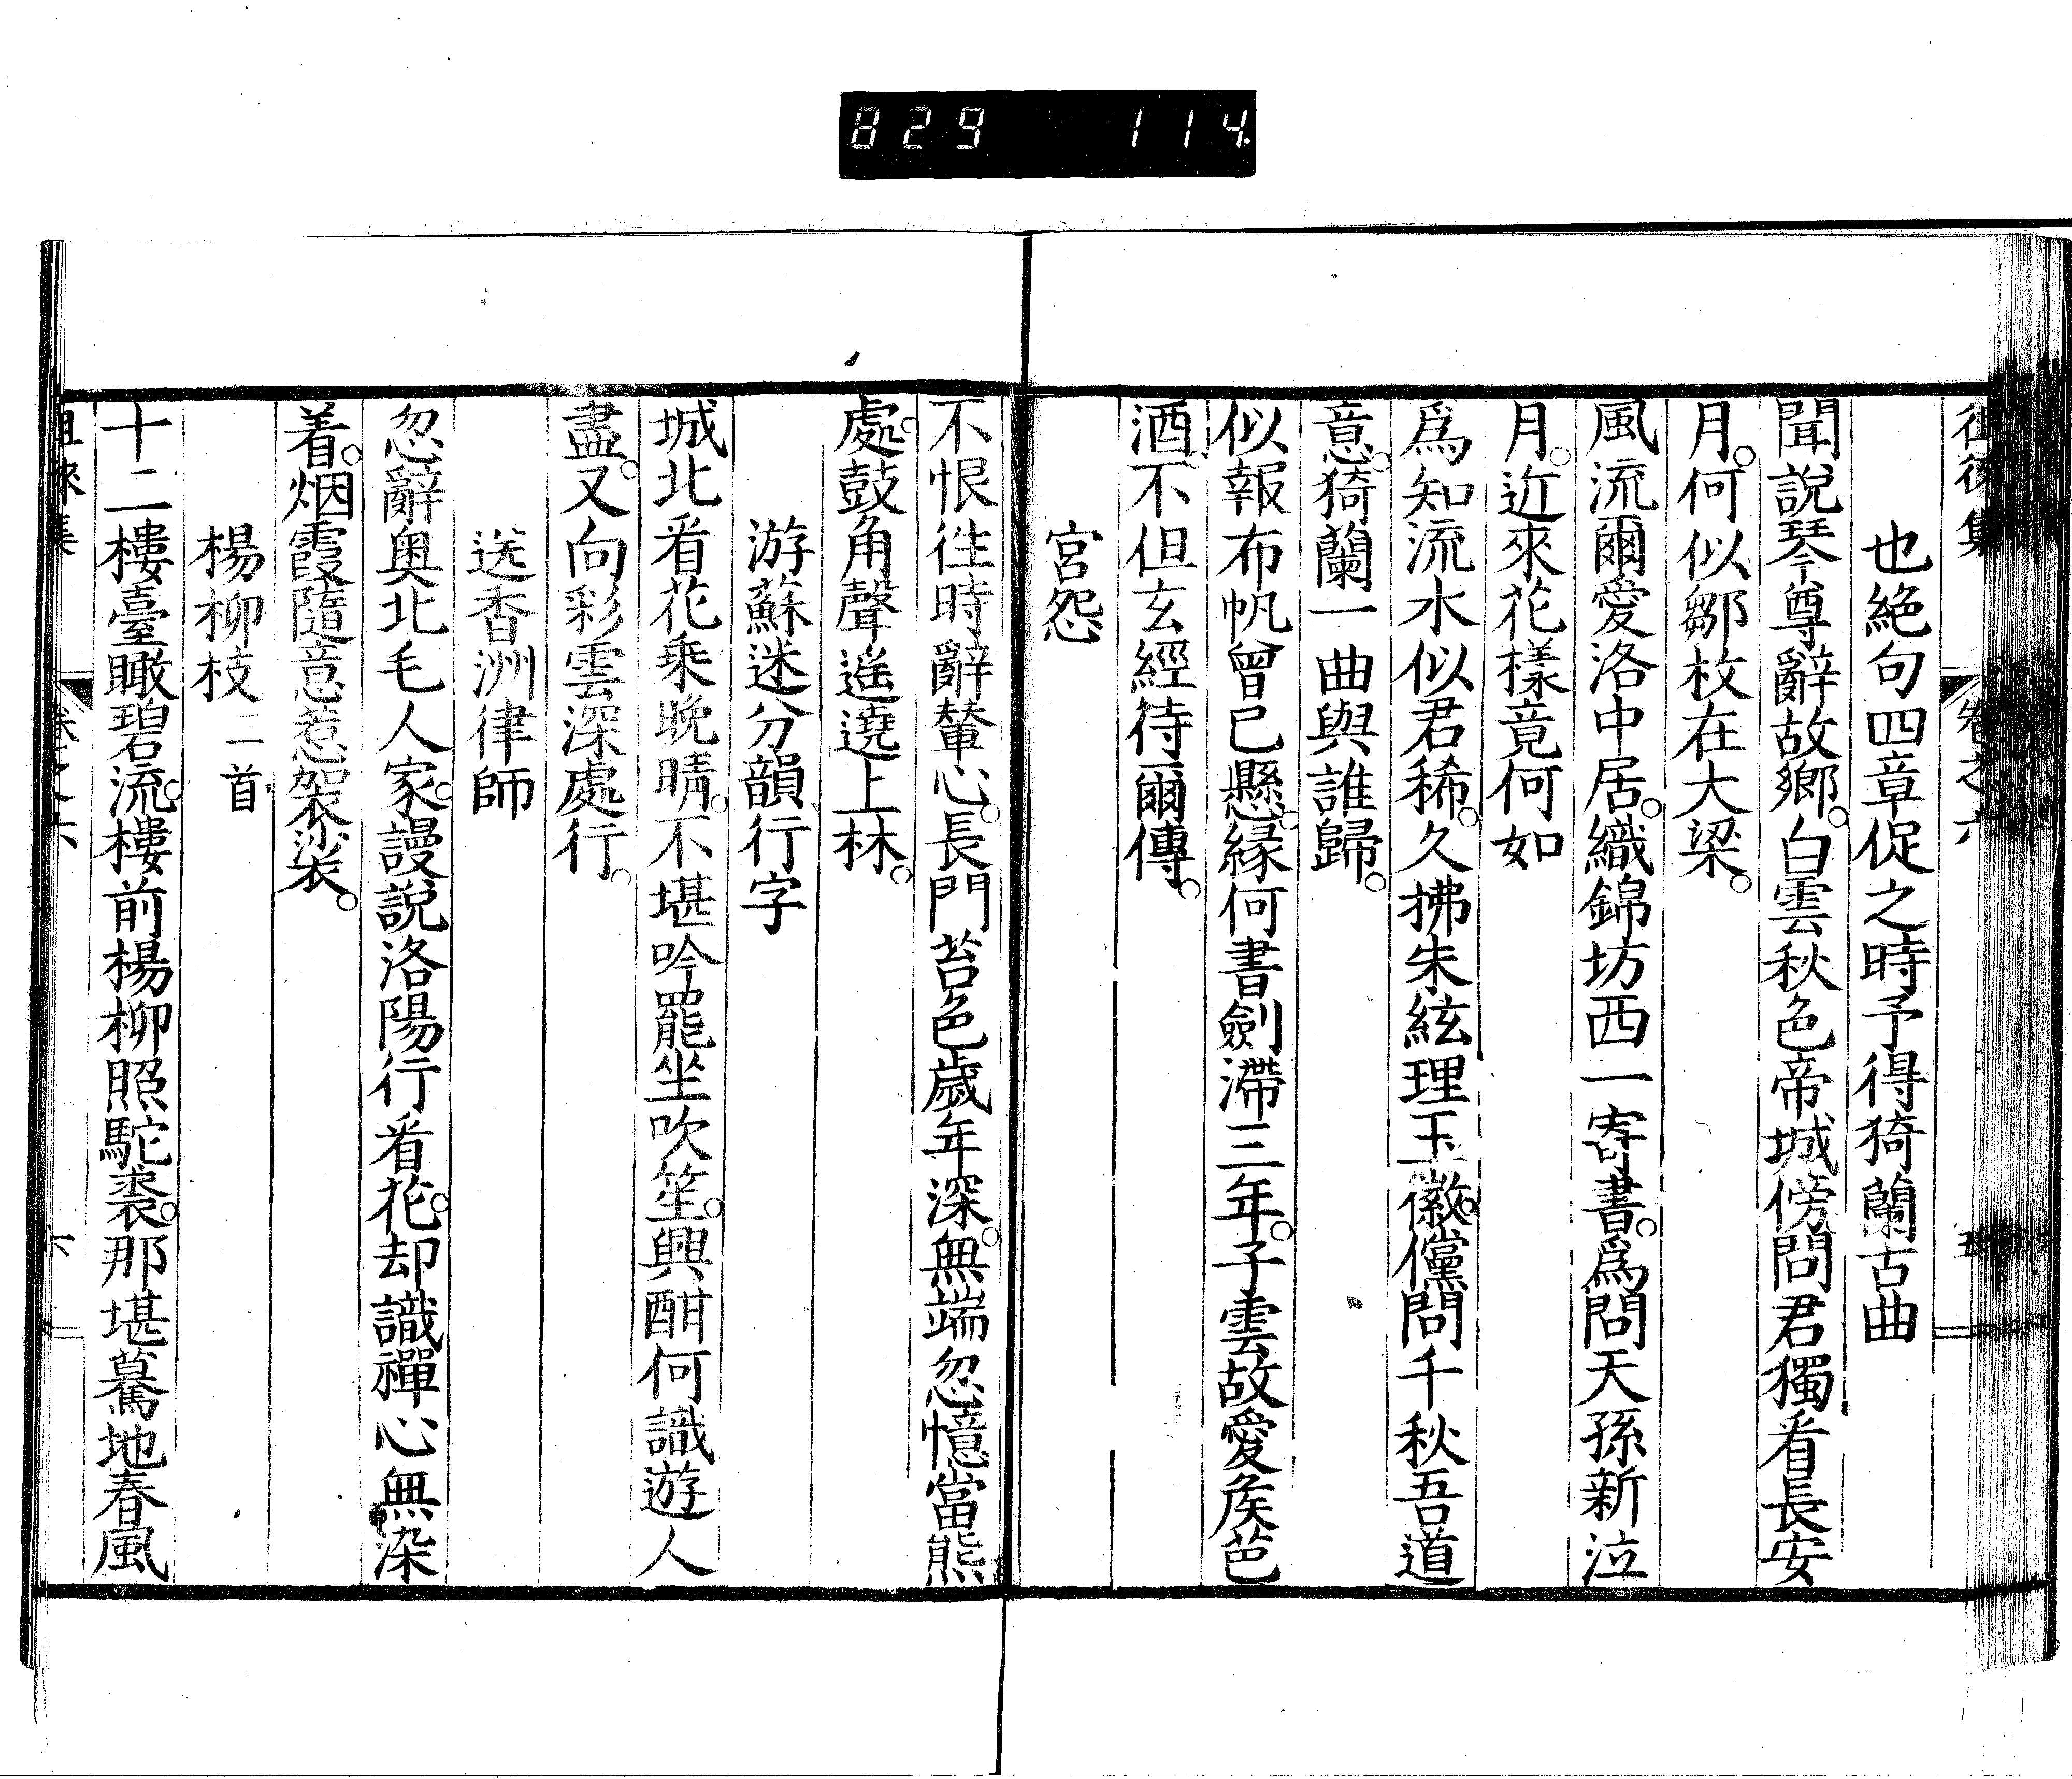 829 114.
徂徠集 卷之六 五
也絶句四章促之時予得猗蘭古曲
聞説琴尊辭故郷。白雲秋色帝城傍問君獨看長安
月。何似鄒枚在大梁。
風流爾愛洛中居。織錦坊西一寄書。爲問天孫新泣
月。近來花樣竟何如
爲知流水似君稀。久拂朱絃理玉徽。儻問千秋吾道
意。猗蘭一曲與誰歸。
似報布帆曾已懸。緣何書劍滯三年。子雲故愛侯芭
酒。不但玄經待爾傳。
宮怨
不恨徃時辭輦心。長門苔色歲年深。無端忽憶當熊
處。鼓角聲遙遶上林。
游蘇迷分韻行字
城北看花乘晩晴。不堪吟罷坐吹笙。興酣何識遊人
盡。又向彩雲深處行。
送香洲律師
忽辭奥北毛人家。謾說洛陽行看花。却識禪心無染
着。烟霞隨意惹袈裟。
楊柳枝二首
十二樓臺瞰碧流。樓前楊柳照駝裘。那堪驀地春風
徂徠集 卷之六 六